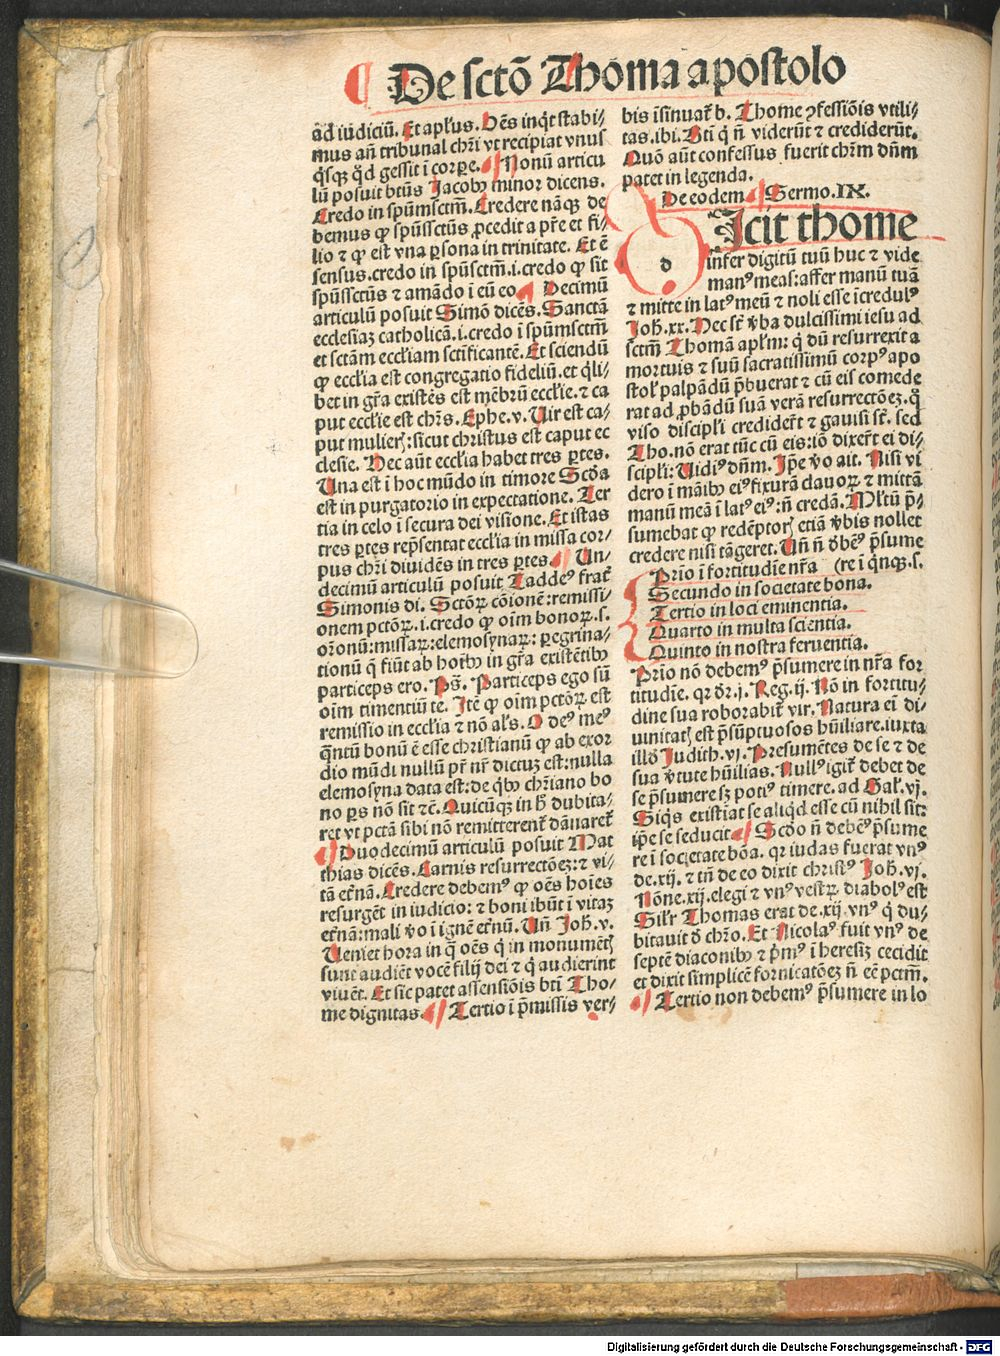 De sctō Thoma apostolo
ad iudiciū. Et apl'us. Oēs inq̇t stabi⸗
mus añ tribunal chri vt recipiat vnus
q̇sqꝫ qd gessit ī corꝑe. Nonū articu
lū posuit btūs Jacobꝰ minor dicens.
Credo in spūmsctm̄. Credere nāqꝫ de
bemus ꝙ spūssctūs ꝓcedit a pr̄e et fi⸗
lio ⁊ ꝙ est vna ꝑsona in trinitate. Et ē
sensus. credo in spūsctm̄.i. credo ꝙ sit
spūssctūs ⁊ amādo ī eū eo Decimū
articulū posuit Simō dicēs. Sanctā
ecclesiaꝫ catholicā.i. credo ī spūmsctm̄
et sctām ecclīam sctīficantē. Et sciendū
ꝙ ecclīa est congregatio fideliū. et qͥli⸗
bet in gr̄a existēs est mēbrū ecclīe. ⁊ ca
put ecclīe est chrs̄. Ephe.v. Uir est ca⸗
put mulierꝭ: sicut christus est caput ec
clesie. Hec aūt ecclīa habet tres ꝑtes.
Una est ī hoc mūdo in timore Scd̄a
est in purgatorio in expectatione. Ter
tia in celo ī secura dei visione. Et istas
tres ꝑtes rep̄sentat ecclīa in missa cor⸗
pus chri diuidēs in tres ꝑtes. Un⸗
decimū articulū posuit Taddeꝰ frat̄
Simonis di. Sctōꝝ cōionē: remissi⸗
onem pctōꝝ.i. credo ꝙ oīm bonoꝝ.s.
or̄onū: missaꝝ: elemosynaꝝ: ꝑegrina⸗
tionū q̄ fiūt ab hoībꝰ in gr̄a existētibꝰ
particeps ero. Ps̄. Particeps ego sū
oīm timentiū te. Itē ꝙ oīm pctōꝝ est
remissio in ecclīa ⁊ nō al's. O deꝰ meꝰ
qͣntū bonū ē esse christianū ꝙ ab exor
dio mūdi nullū pr̄ nr̄ dictuꝫ est: nulla
elemosyna data est: de qͥbꝫ chr̄iano bo
no ꝑs nō sit ⁊c̄. Quicūqꝫ in h̄ dubita⸗
ret vt pctā sibi nō remitterent̄ dānaret̄
Duodecimū articulū posuit Mat
thias dicēs. Carnis resurrectōeꝫ: ⁊ vi⸗
tā et̄nā. Credere debemꝰ ꝙ oēs hoīes
resurgēt in iudicio: ⁊ boni ibūt ī vitaꝫ
et̄nā: mali v̄o ī ignē et̄nū. Uñ Joh̄.v.
Ueniet hora in qͣ oēs qͥ in monumētꝭ
sunt audiēt vocē filij dei ⁊ qͥ audierint
viuēt. Et sic patet assensiōis btī Tho⸗
me dignitas. Tertio ī p̄missis ver⸗
bis īsinuat̄ b. Thome ꝯfessiōis vtili⸗
tas. ibi. Bti qͥ ñ viderūt ⁊ crediderūt.
Quō aūt confessus fuerit chrm̄ dn̄m
patet in legenda.
De eodem Sermo.IX.
Dicit thome
d
infer digitū tuū huc ⁊ vide
manꝰ meas: affer manū tuā
⁊ mitte in latꝰ meū ⁊ noli esse īcredulꝰ
Joh̄.xx. Hec st̄ v̄ba dulcissimi iesu ad
sctm̄ Thomā apl'm: qͥ dū resurrexit a
mortuis ⁊ suū sacratissimū corpꝰ apo
stol' palpādū p̄buerat ⁊ cū eis comede
rat ad ꝓbādū suā verā resurrectōeꝫ. qͦ
viso discipl'i credider̄t ⁊ gauisi st̄. sed
Tho. nō erat tūc cū eis: iō dixer̄t ei di⸗
scipl'i: Uidimꝰ dn̄m. Ip̄e v̄o ait. Nisi vi
dero ī māibꝰ eiꝰ fixurā clauoꝝ ⁊ mittā
manū meā ī latꝰ eiꝰ: ñ credā. Ml'tū p̄⸗
sumebat ꝙ redēptorꝭ etiā v̄bis nollet
credere nisi tāgeret. Uñ ñ d̄bēꝰ p̄sume
Prīo ī fortitudīe nr̄a (re ī qͥnqꝫ.s.
Secundo in societate bona.
Tertio in loci eminentia.
Quarto in multa scientia.
Quinto in nostra feruentia.
Prīo nō debemꝰ p̄sumere in nr̄a for
titudīe. qr dr̄.j. Reg.ij. Nō in fortitu⸗
dine sua roborabit̄ vir. Natura ei di⸗
uinitatꝭ est p̄sūptuosos hūiliare. iuxta
illd̄ Judith.vj. Presumētes de se ⁊ de
sua v̄tute hūilias. Nullꝰ igit̄ debet de
se p̄sumere sꝫ potiꝰ timere. ad Gal'.vj.
Siqͥs existīat se aliqd esse cū nihil sit:
ip̄e se seducit Scd̄o ñ debēꝰ p̄sume
re ī societate bōa. qr iudas fuerat vnꝰ
de.xij. ⁊ tn̄ de eo dixit christꝰ Joh̄.vj.
Nōne.xij. elegi ⁊ vnꝰ vestꝝ diabolꝰ est
Silr̄ Thomas erat de.xij. vnꝰ qͥ du⸗
bitauit d̄ chr̄o. Et Nicolaꝰ fuit vnꝰ de
septē diaconibꝰ ⁊ p̄mꝰ ī heresiꝫ cecidit
et dixit simplicē fornicatōeꝫ ñ eē pctm̄.
Tertio non debemꝰ p̄sumere in lo
Digitalisierung gefördert durch die Deutsche Forschungsgemeinschaft - DFG